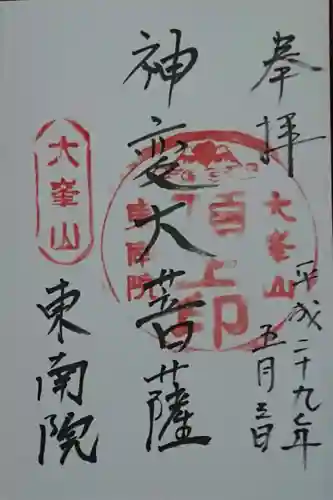 奉拝
平成二十九年
五月三日
神変大菩薩
東南院
大峯山
大峯山
東南院